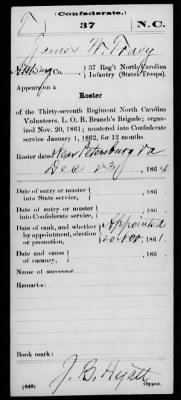 (Confederate.)
T 37 N.C.
James W. Tracy
37 Reg't North Carolina
Infantry (State Troops).
Appears on a
Roster
of the Thirty-seventh Regiment North Carolina
Volunteers, L. O. B. Branch's Brigade; organ-
ized Nov. 20, 1861; mustered into Confederate
service January 1, 1862, for 12 months.
Roster dated Near Petersburg Va
Dec 23d , 1864.
Date of entry or muster
into State service, , 186 .
Date of entry or muster
into Confederate service, , 186 .
Date of rank, and whether
by appointment, election
or promotion, Appointed
20, 1861.
Date and cause
of vacancy, , 186 .
Name of successor
Remarks:
Book mark:
(649)
J. B. Hyatt
Copyist.